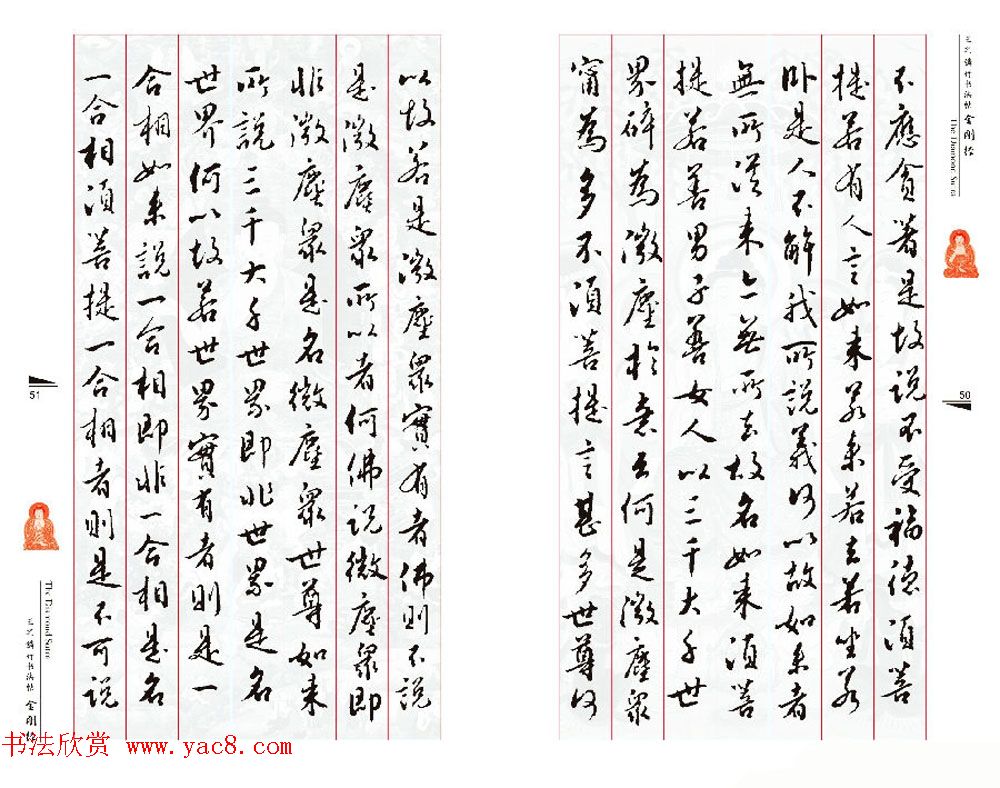 行书法帖 金剛經
The Diamond Sutra
50
不應貪著是故说不受福德須菩
提若有人言如來若來若去若坐若
卧是人不解我所說義何以故如來者
無所從來亦無所去故名如來須菩
提若善男子善女人以三千大千世
界碎為微塵於意云何是微塵眾
甯為多不須菩提言甚多世尊何
以故若是微塵眾實有者佛則不說
是微塵眾所以者何佛说微塵眾即
非微塵眾是名微塵眾世尊如來
所說三千大千世界即非世界是名
世界何以故若世界實有者則是一
合相如來說一合相即非一合相是名
一合相須菩提一合相者則是不可说
51
The Diamond Sutra
行书法帖 金剛經
书法欣赏 www.yac8.com